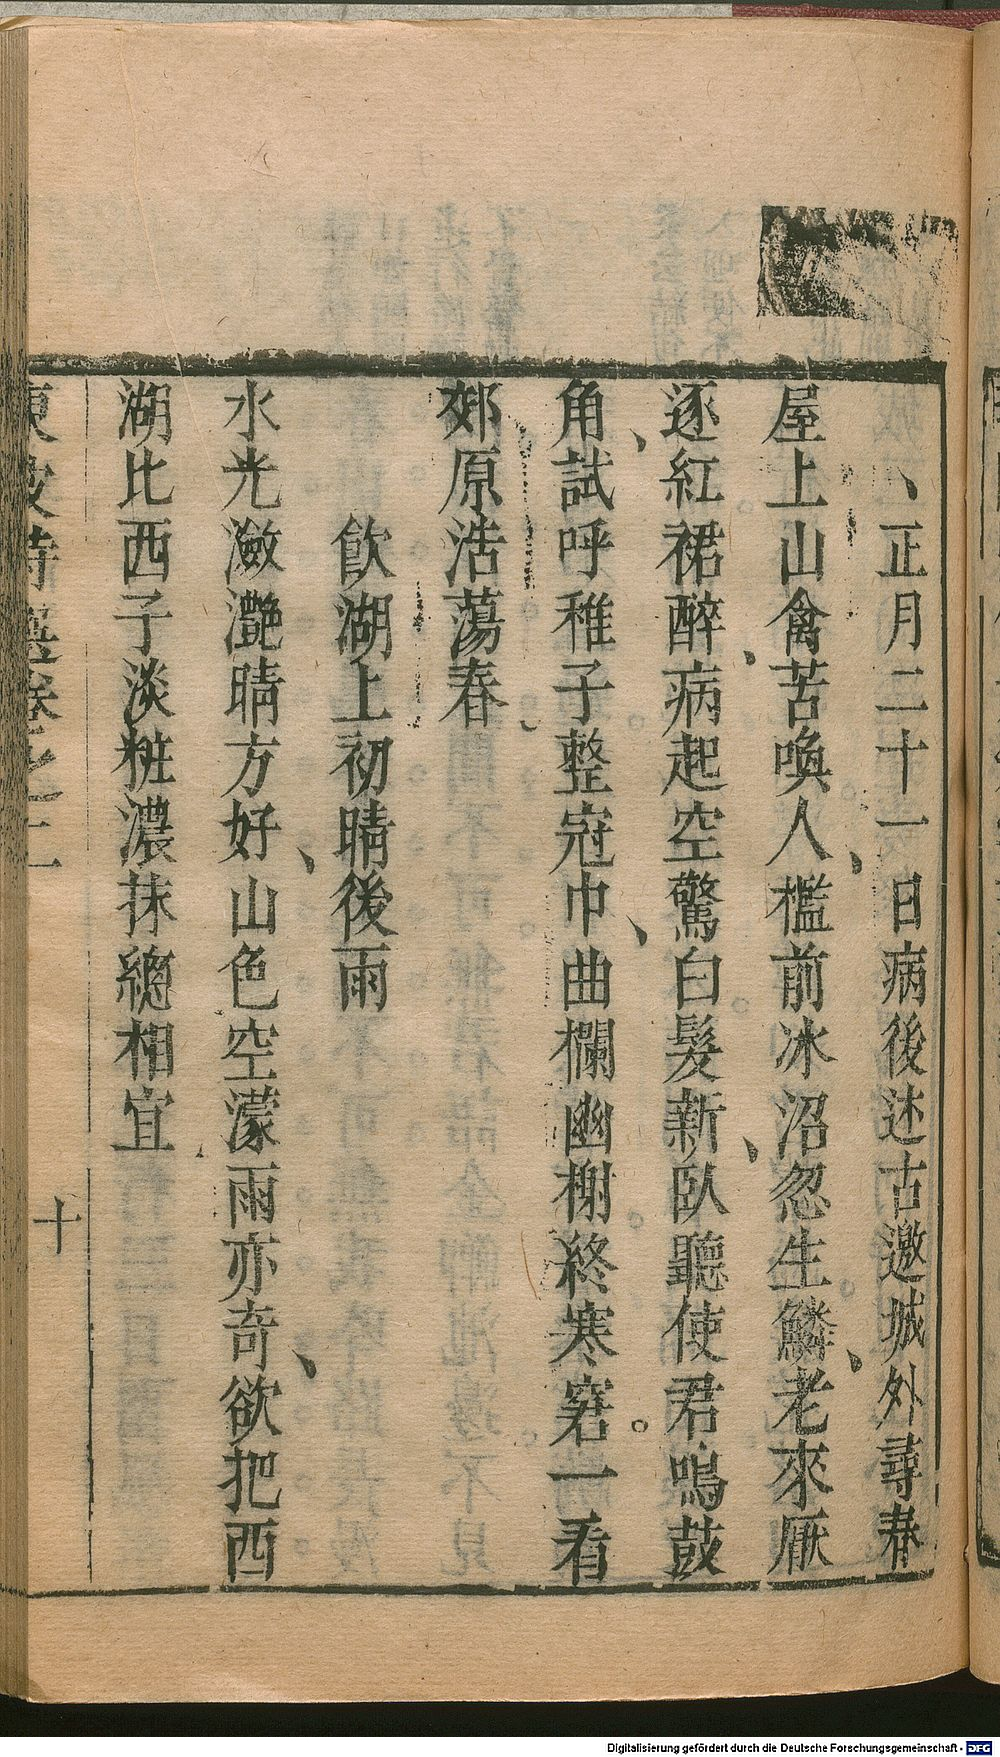 正月二十一日病後述古邀城外尋春
屋上山禽苦喚人檻前冰沼忽生鱗老來厭
逐紅裙醉病起空驚白髮新臥聽使君嗚鼓
角試呼稚子整冠巾曲欄幽榭終寒窘一看
郊原浩蕩春
飲湖上初晴後雨
水光瀲灧晴方好山色空濛雨亦奇欲把西
湖比西子淡粧濃抹總相宜
東坡詩選卷之二
十
Digitalisierung gefördert durch die Deutsche Forschungsgemeinschaft - DFG